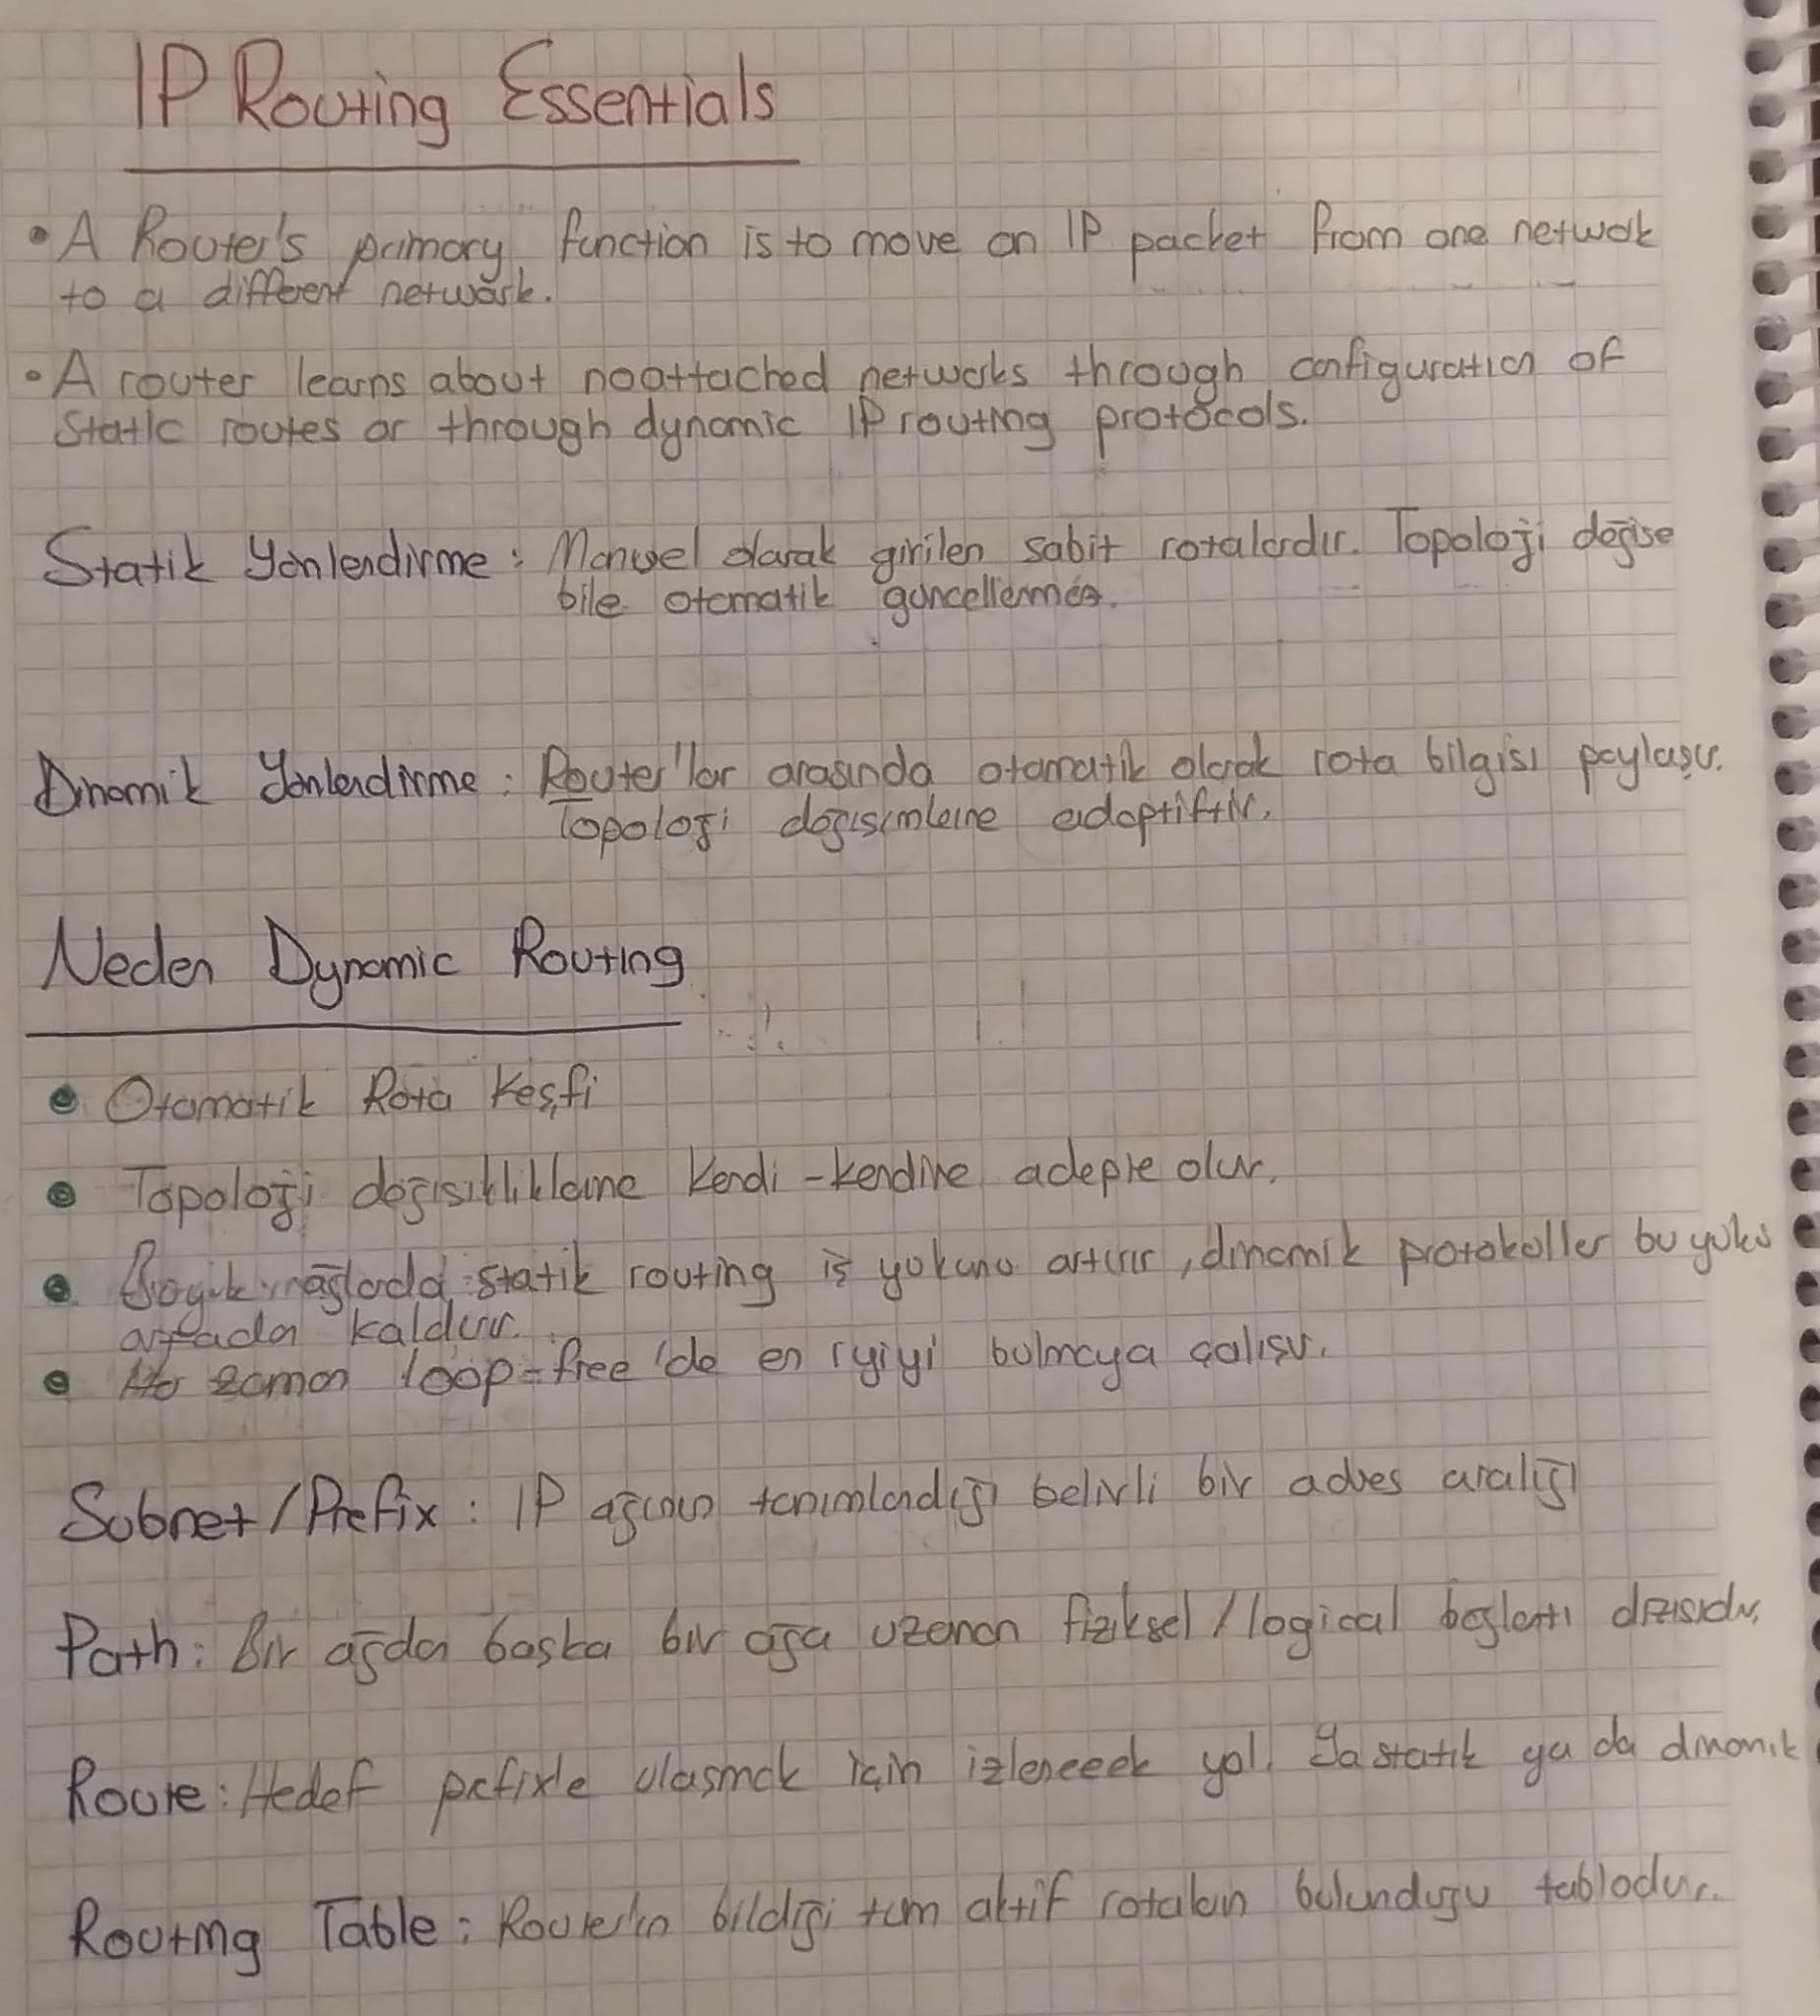 IP Routing Essentials
• A Router's primary function is to move an IP packet from one netwok
to a different network.
• A router learns about noattached networks through configuration of
Static routes or through dynamic IP routing protocols.
Statik Yönlendirme : Manuel olarak girilen sabit rotalardır. Topoloji değişe
bile otomatik güncellenmez.
Dinamik Yönlendirme : Router'lar arasında otomatik olarak rota bilgisi paylaşır.
Topoloji değişimlerine adaptiftir.
Neden Dynamic Routing
• Otomatik Rota Keşfi
• Topoloji değişikliklerine kendi-kendine adepte olur.
• Büyük ağlarda statik routing iş yükünü artırır, dinamik protokoller bu yükü
ortadan kaldırır.
• Her zaman loop-free 'de en iyiyi bulmaya çalışır.
Subnet/Prefix : IP ağının tanımlandığı belirli bir adres aralığı
Path : Bir ağdan başka bir ağa uzanan fiziksel/logical bağlantı dizisidir.
Route : Hedef prefix'e ulaşmak için izlenecek yol. Ya statik ya da dinamik
Routing Table : Router'ın bildiği tüm aktif rotaların bulunduğu tablodur.